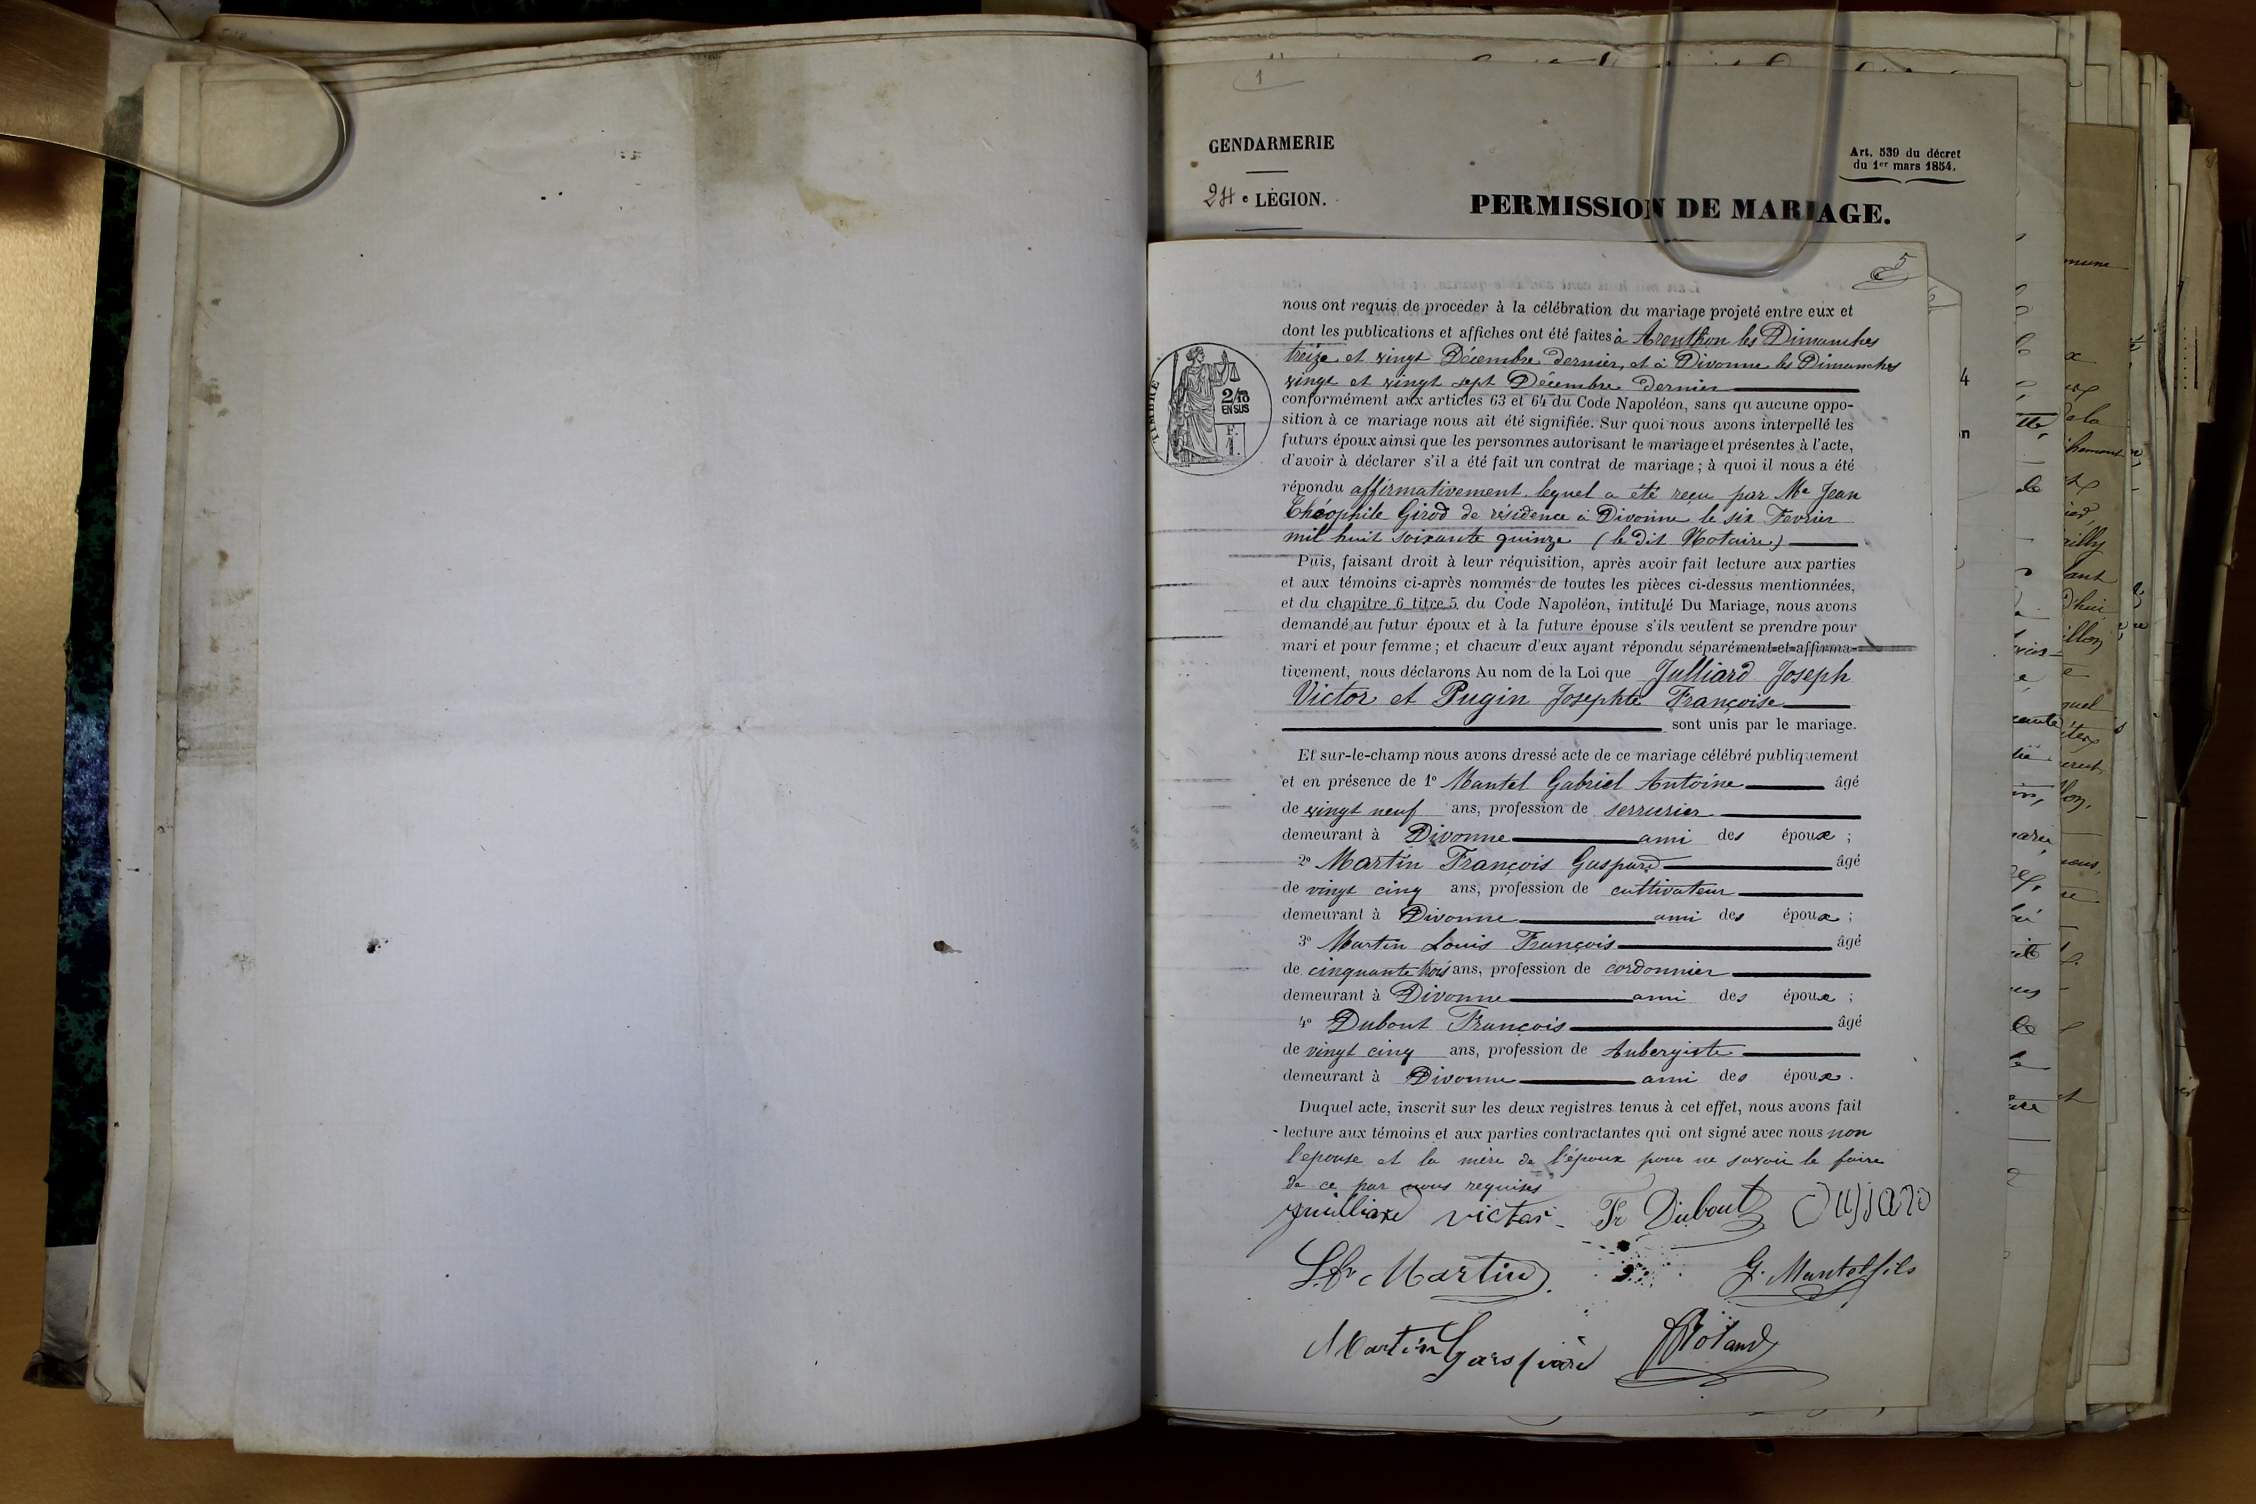 1
GENDARMERIE
24e LÉGION.
Art. 539 du décret
du 1er mars 1854.
PERMISSION DE MARIAGE.
5
nous ont requis de procéder à la célébration du mariage projeté entre eux et
dont les publications et affiches ont été faites à Arenthon les Dimanches
treize et vingt Décembre dernier, et à Divonne les Dimanches
vingt et vingt sept Décembre dernier
conformément aux articles 63 et 64 du Code Napoléon, sans qu'aucune oppo-
sition à ce mariage nous ait été signifiée. Sur quoi nous avons interpellé les
futurs époux ainsi que les personnes autorisant le mariage et présentes à l'acte,
d'avoir à déclarer s'il a été fait un contrat de mariage ; à quoi il nous a été
répondu affirmativement, lequel a été reçu par Me Jean
Théophile Girod de résidence à Divonne le six Fevrier
mil huit soixante quinze (le dit Notaire)
Puis, faisant droit à leur réquisition, après avoir fait lecture aux parties
et aux témoins ci-après nommés de toutes les pièces ci-dessus mentionnées,
et du chapitre 6 titre 5 du Code Napoléon, intitulé Du Mariage, nous avons
demandé au futur époux et à la future épouse s'ils veulent se prendre pour
mari et pour femme ; et chacun d'eux ayant répondu séparément et affirma-
tivement, nous déclarons Au nom de la Loi que Julliard Joseph
Victor et Pugin Josephte Françoise
sont unis par le mariage.
Et sur-le-champ nous avons dressé acte de ce mariage célébré publiquement
et en présence de 1° Mantel Gabriel Antoine âgé
de vingt neuf ans, profession de serrurier
demeurant à Divonne ami des époux ;
2° Martin François Gaspard âgé
de vingt cinq ans, profession de cultivateur
demeurant à Divonne ami des époux ;
3° Martin Louis François âgé
de cinquante trois ans, profession de cordonnier
demeurant à Divonne ami des époux ;
4° Dubout François âgé
de vingt cinq ans, profession de Aubergiste
demeurant à Divonne ami des époux.
Duquel acte, inscrit sur les deux registres tenus à cet effet, nous avons fait
lecture aux témoins et aux parties contractantes qui ont signé avec nous non
l'epouse et la mère de l'époux pour ne savoir le faire
de ce par nous requises
Juilliard victor Fr Dubout
L. Fr Martin G. Mantel fils
Martin Gaspard Roland
2/10 EN SUS